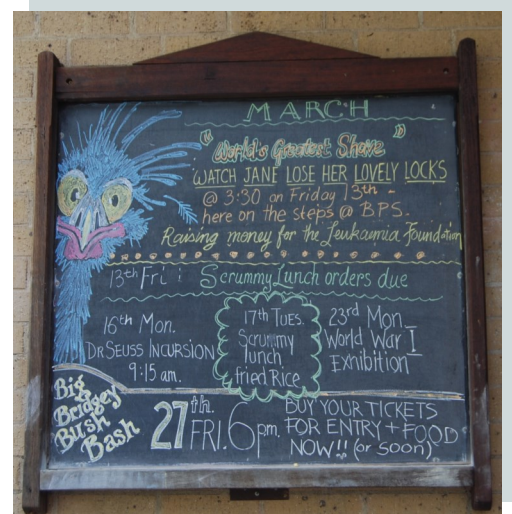 MARCH
"World's Greatest Shave"
WATCH JANE LOSE HER LOVELY LOCKS
@ 3:30 on Friday 13th -
here on the steps @ BPS.
Raising money for the Leukaemia Foundation
13th Fri: Scrummy Lunch orders due
16th Mon.
DR SEUSS INCURSION
9:15 am.
17th TUES.
Scrummy
lunch
fried Rice
23rd Mon.
World War I
Exhibition
Big
Bridgey
BUsh
Bash
27th.
FRI. 6pm.
BUY YOUR TICKETS
FOR ENTRY + FOOD
NOW!! (or soon)